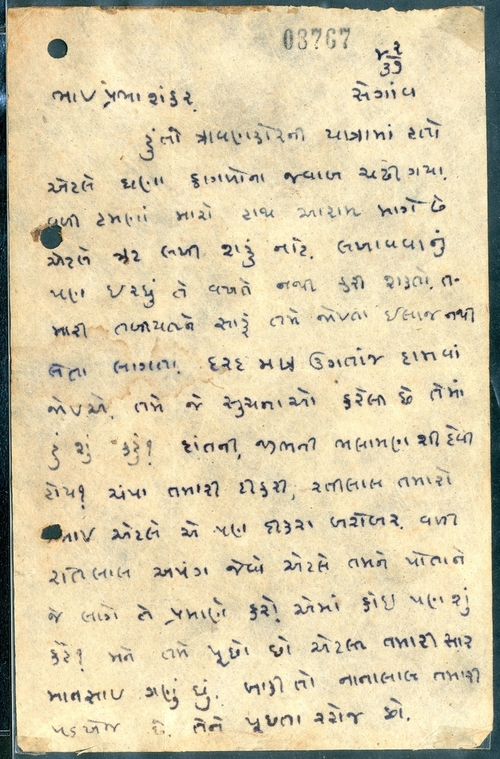 03767
સેગાંવ
ભાઇ પ્રભાશંકર,
હું તો ત્રાવણકોરની યાત્રામાં હતો
એટલે ઘણા કાગળોના જવાબ ચઢી ગયા.
વળી હમણાં મારો હાથ આરામ માગે છે
એટલે ઝટ લખી શકું નહિ. લખાવવાનું
પણ ઇચ્છું તે વખતે નથી કરી શકતો. ત-
મારી તબીયતને સારૂં તમે જોઇતા ઈલાજ નથી
લેતા લાગતા. દરદ ઉગતાંજ દાબવાં
જોઇએ. તમે જે સુચનાઓ કરેલી છે તેમાં
હું શું કહું? દાંતની, જીભની ભલામણ શી દેવી
હોય? ચંપા તમારી દીકરી, રતીલાલ તમારો
એટલે એ પણ દીકરા બરોબર. વળી
રતિલાલ અપંગ જેવો એટલે તમને પોતાને
જે લાગે તે પ્રમાણે કરો. એમાં કોઇ પણ શું
કહે? મને તમે પૂછો છો એટલે તમારી સાર
માનસાઇ ગણું છું. બાકી તો નાનાલાલ તમારી
પડખેજ છે. તેને પૂછતા રહોજ છો.